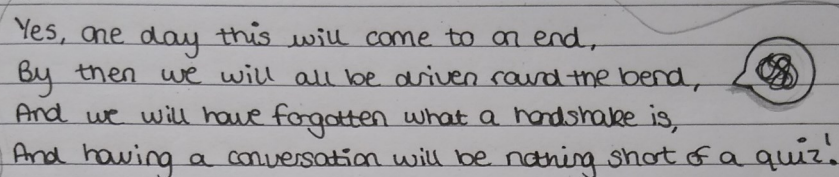 Yes, one day this will come to an end,
By then we will all be driven round the bend,
And we will have forgotten what a handshake is,
And having a conversation will be nothing short of a quiz!